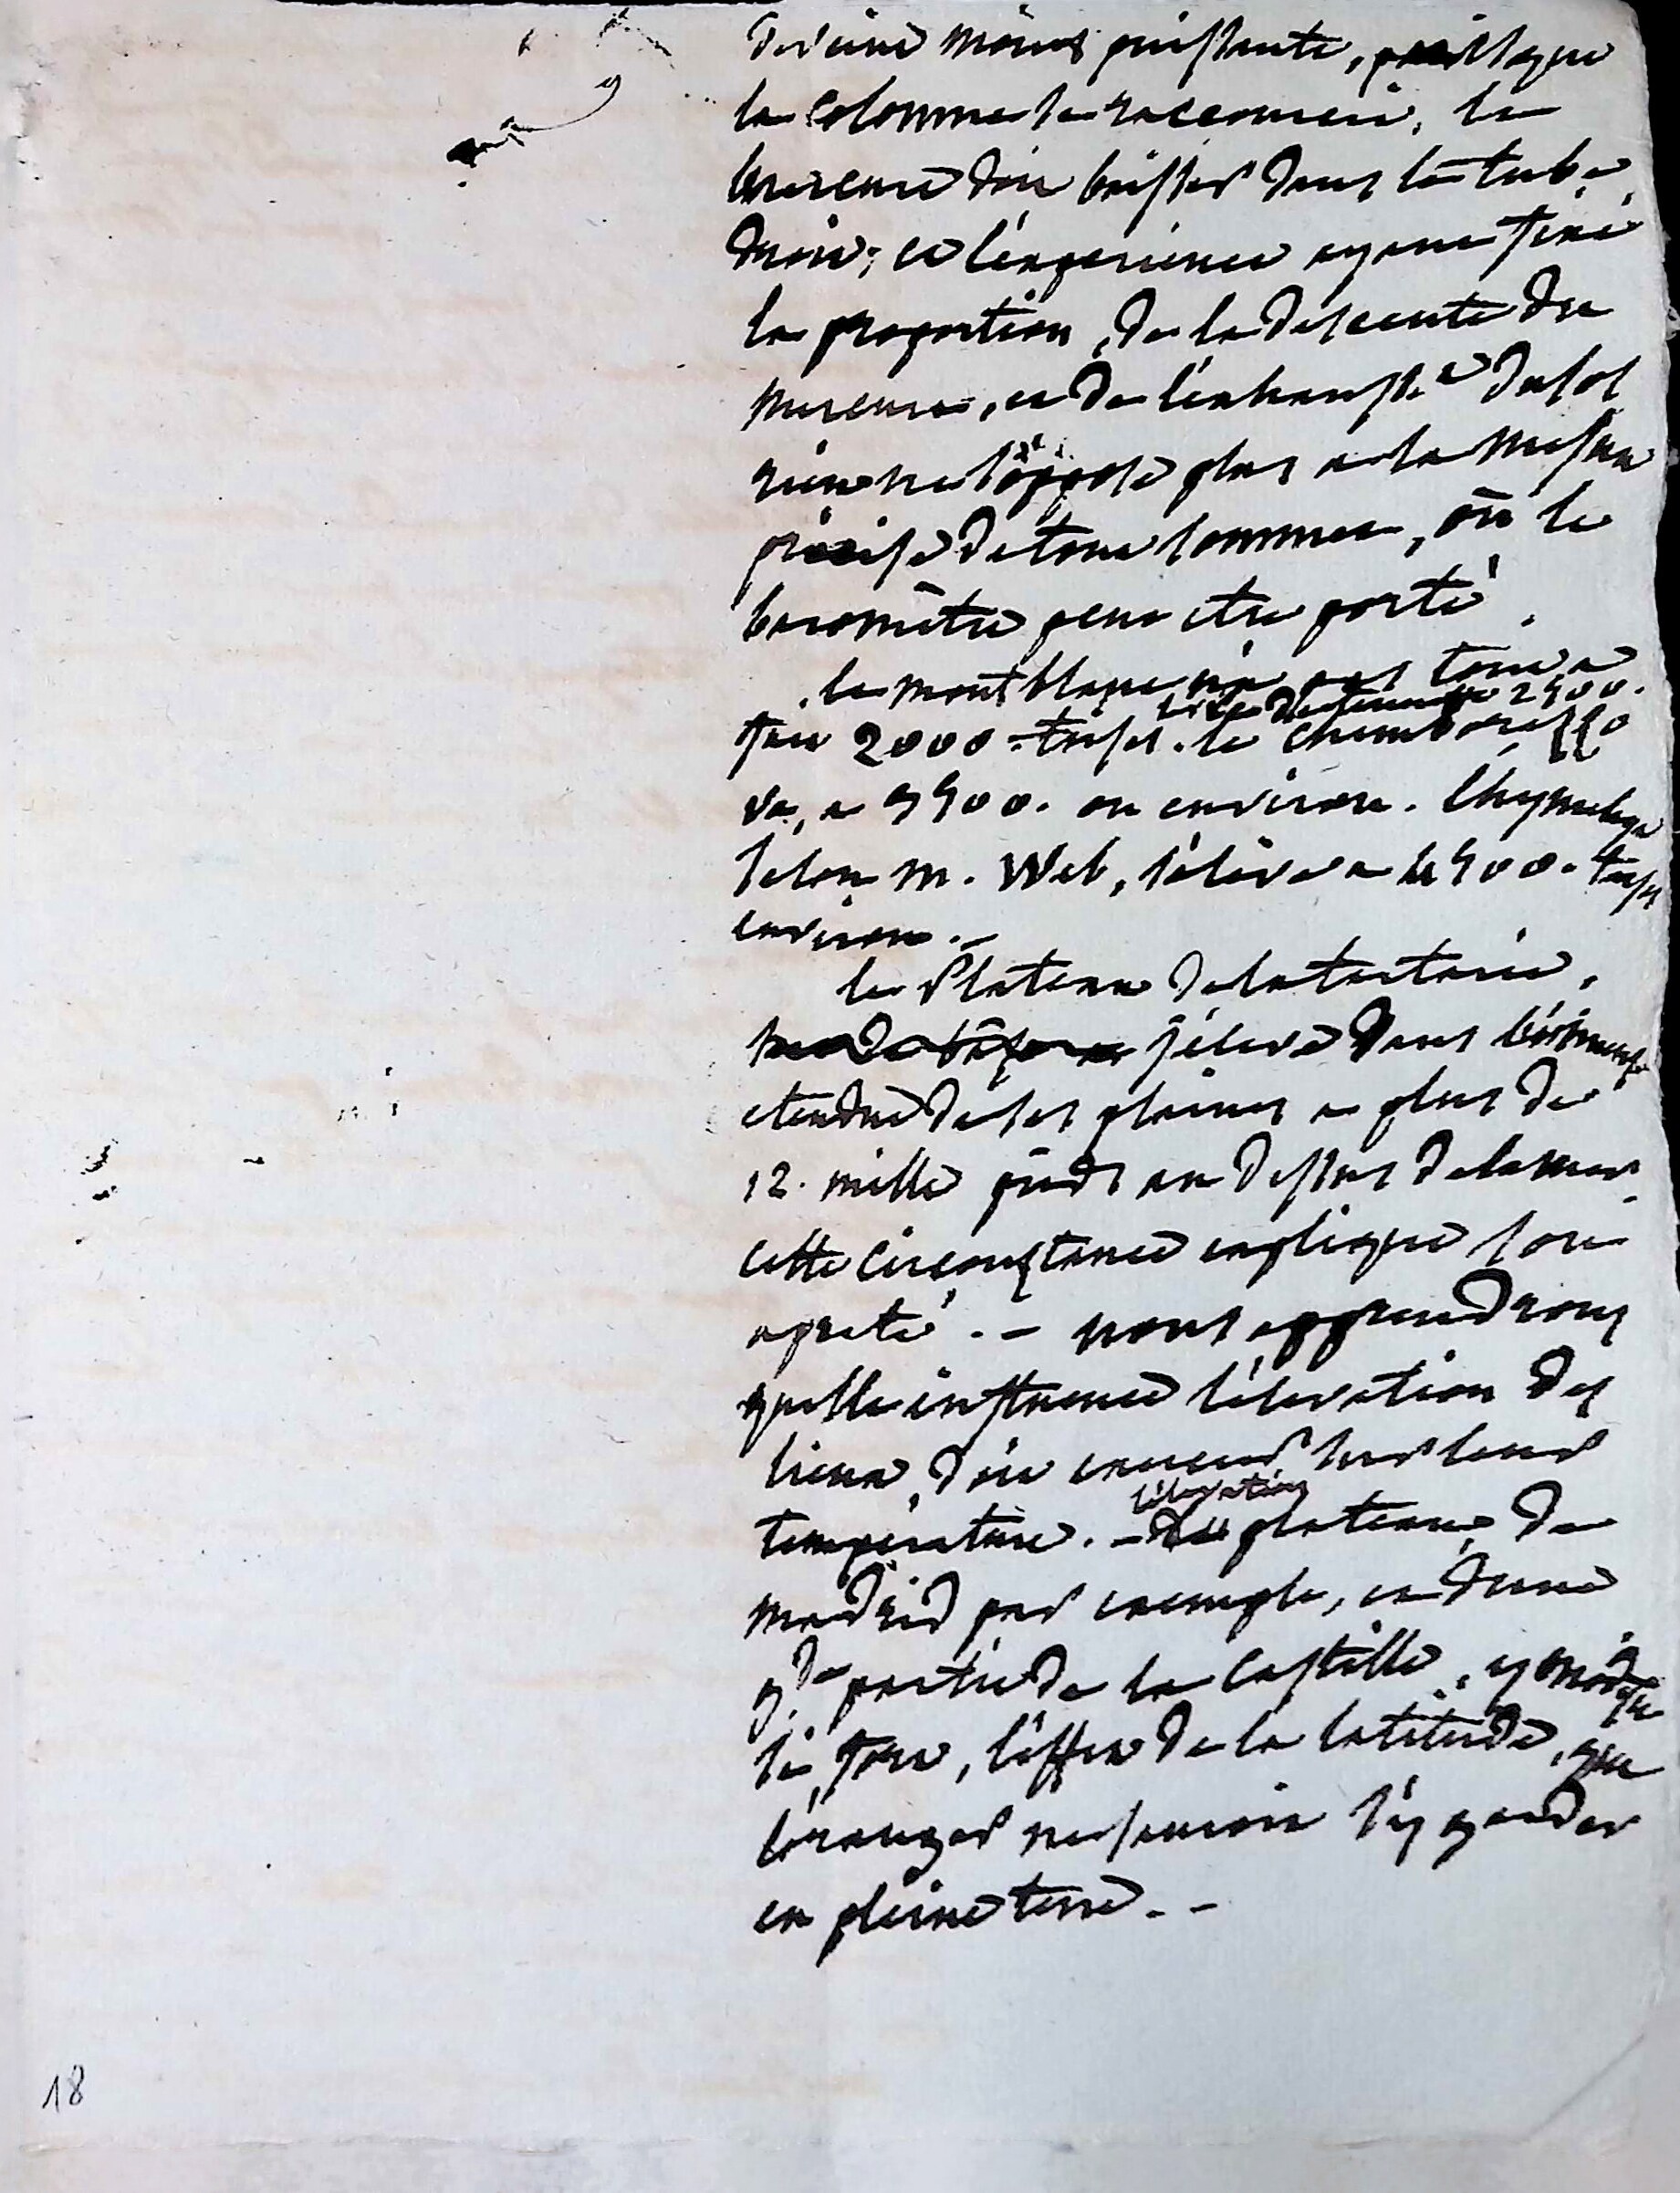 devient moins puissante, puisque
la colonne se raccourcit, le
mercure doit baisser dans le tube
droit; et l'experience ayant fixé
la proportion, de la descente du
mercure, et de l'exhausst.t du sol
rien ne s'oppose plus a la mesure
précise de tout sommet, où le
barometre peut etre porté.
le mont blanc n'a pas tout a
2400.
fait 2000 toises. le Chimborasso
va, a 3400. ou environ. l'hymalaya
selon m. Web, s'élève a 4400. toises
environ. -
le Plateau de la tartarie,
s'élève dans l'immense
etendue de ses plaines a plus de
12. mille pieds au dessus de la mer
cette circonstance explique son
apreté. - nous apprendrons
quelle influence l'élévation des
lieux, doit exercer sur leur
l'élévation
temperature. - du plateau, de
madrid par exemple, et d'une
g.de partie de la Castille, y modifie
si fort, l'effet de la latitude, que
l'oranger ne sauroit s'y garder
en pleine terre. - -
18